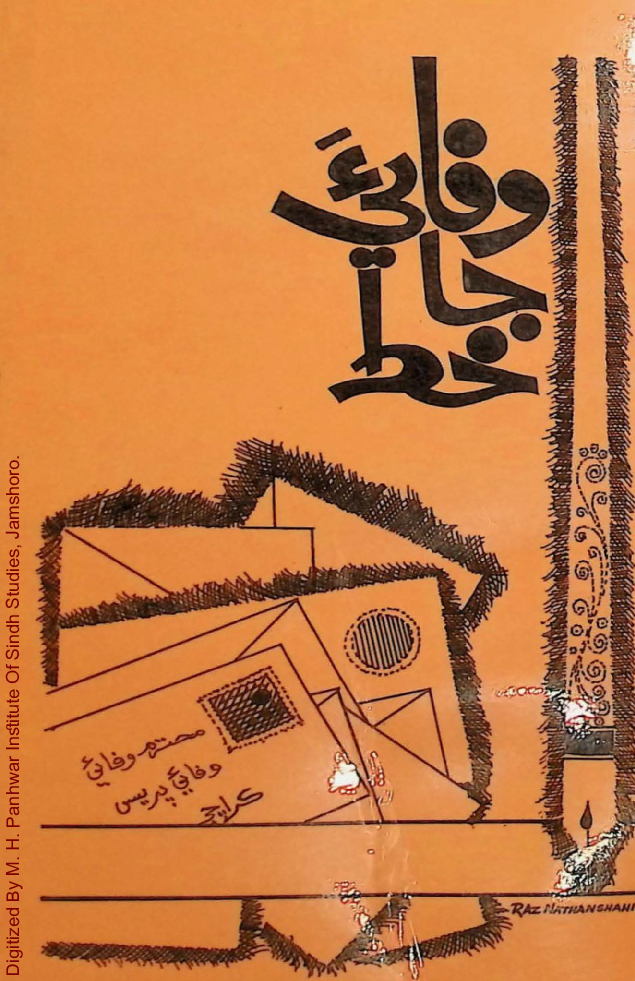 وفائيءَ
جا
خط
محترم وفائي
وفائي پريس
ڪراچي
RAZ NATHANSHAHI
Digitized By M. H. Panhwar Institute Of Sindh Studies, Jamshoro.